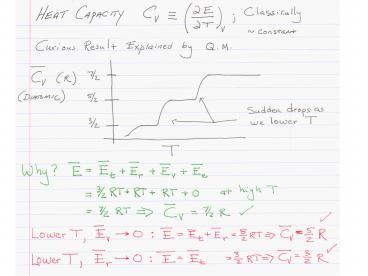 HEAT CAPACITY C_V ≡ (∂E/∂T)_V ; Classically
~ constant
Curious Result Explained by Q.M.
C̅_V (R) 7/2
(DIATOMIC) 5/2
Sudden drops as
we lower T
3/2
T
Why? E̅ = E̅_t + E̅_r + E̅_v + E̅_e
= 3/2 RT + RT + RT + 0 at high T
= 7/2 RT ⇒ C̅_V = 7/2 R ✓
Lower T, E̅_v → 0 : E̅ = E̅_t + E̅_r = 5/2 RT ⇒ C̅_V = 5/2 R ✓
Lower T, E̅_r → 0 : E̅ = E̅_t = 3/2 RT ⇒ C̅_V = 3/2 R ✓